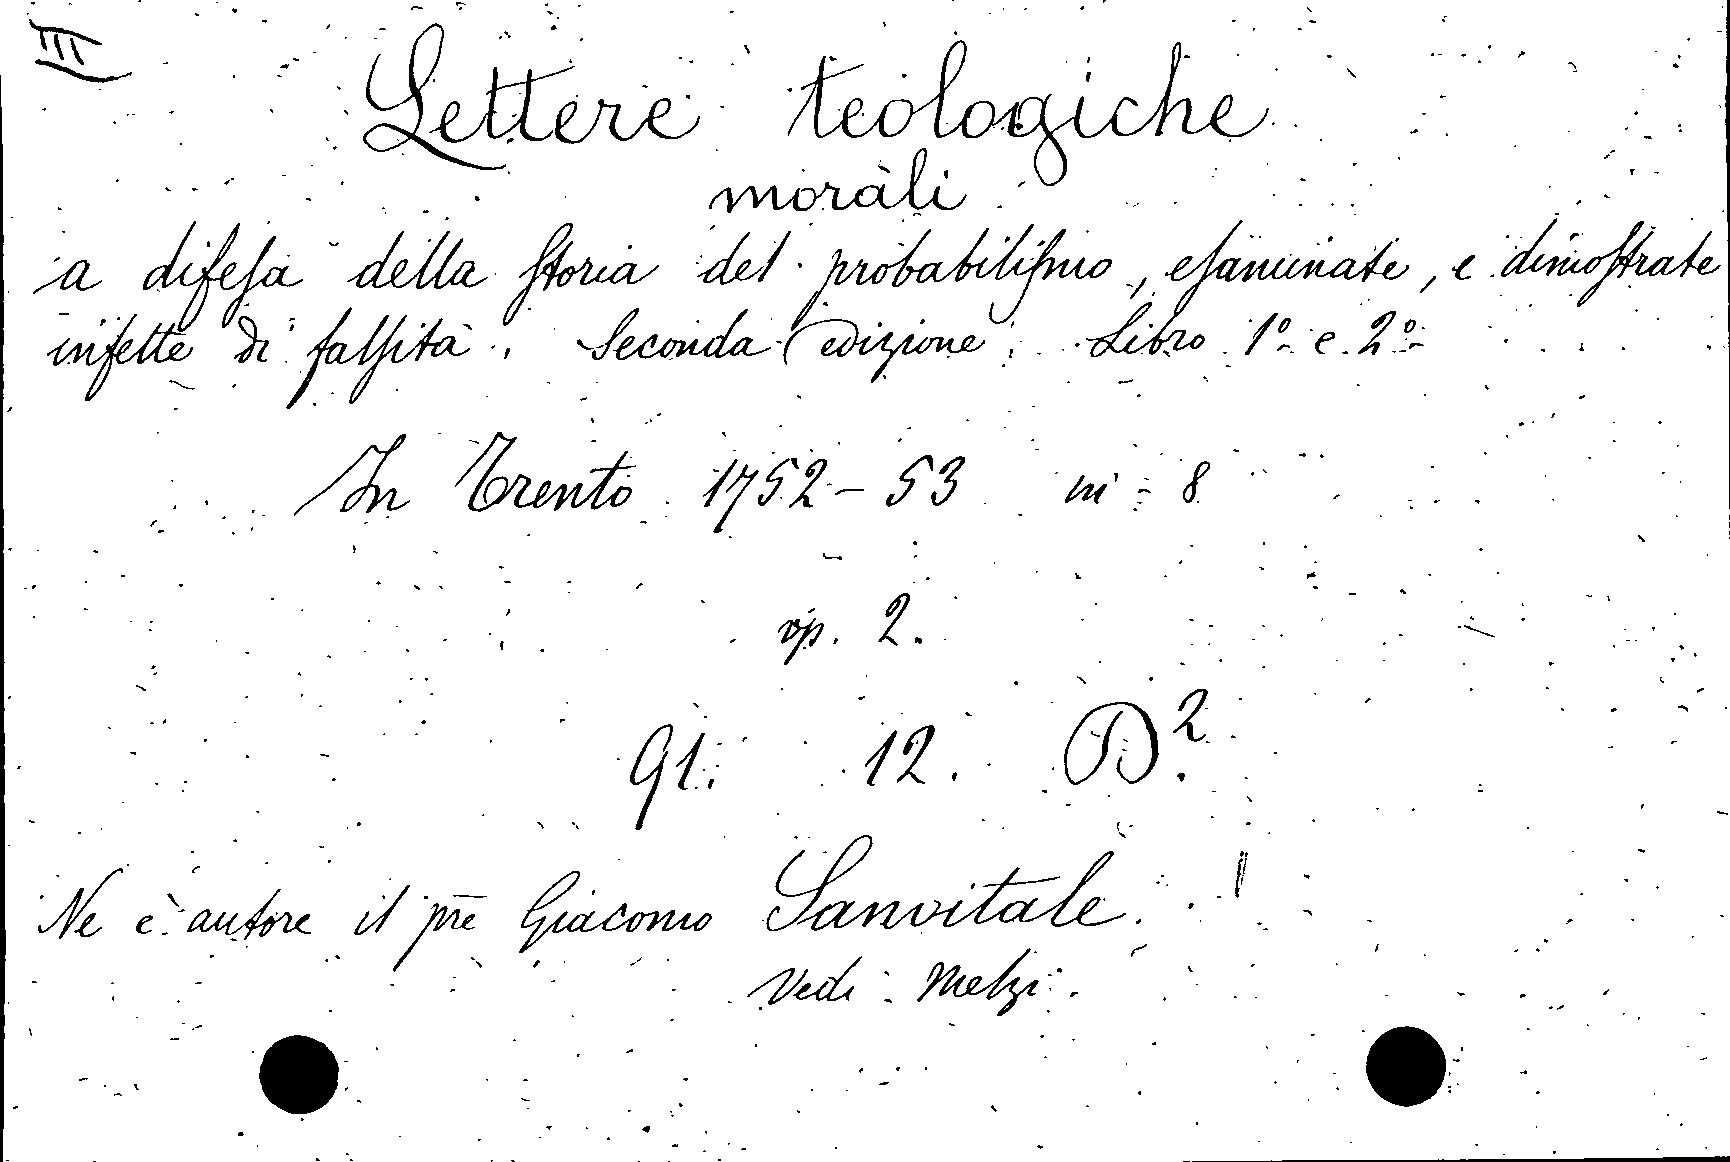 III
Lettere teologiche
morali
a difesa della storia del probabilismo, esaminate, e dimostrate
infette di falsità. Seconda edizione. Libro 1º e 2º
In Trento 1752-53 in-8
op. 2.
91. 12. D².
Ne è autore il pre Giacomo Sanvitale.
Vedi Melzi.